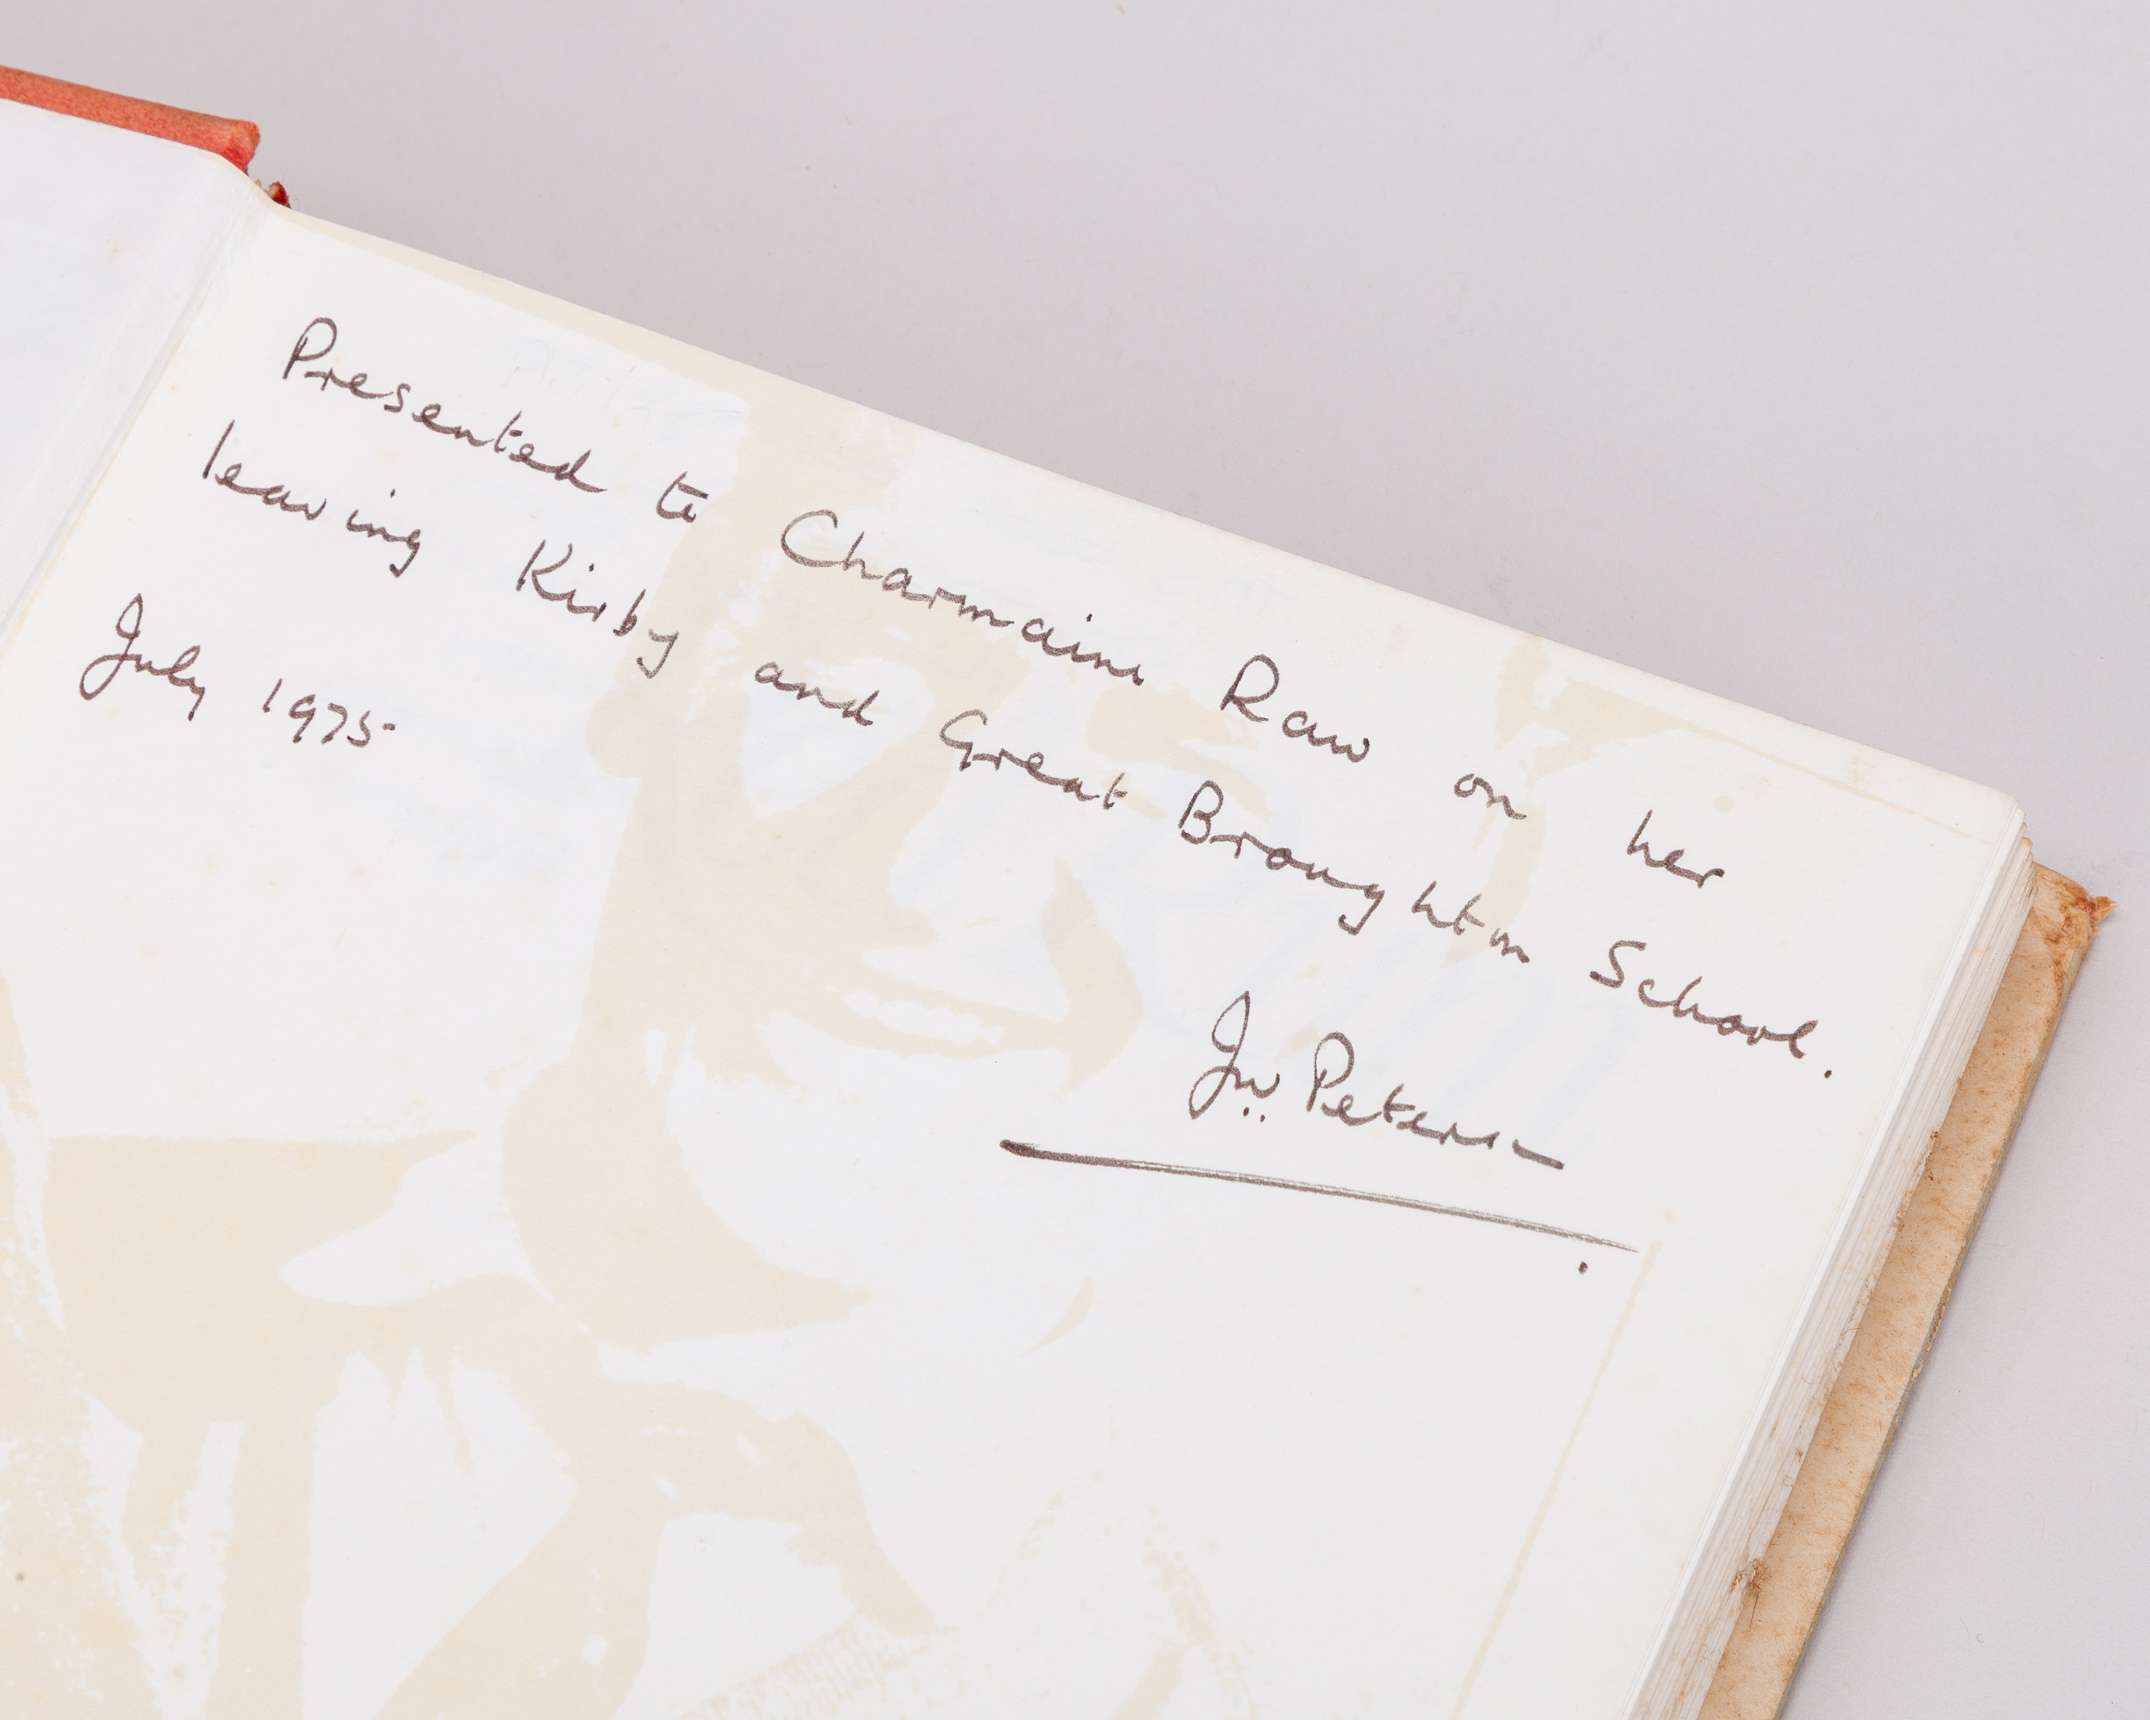 Presented to Charmaine Raw on her
leaving Kirby and Great Broughton School.
July 1975
Jw Peterson